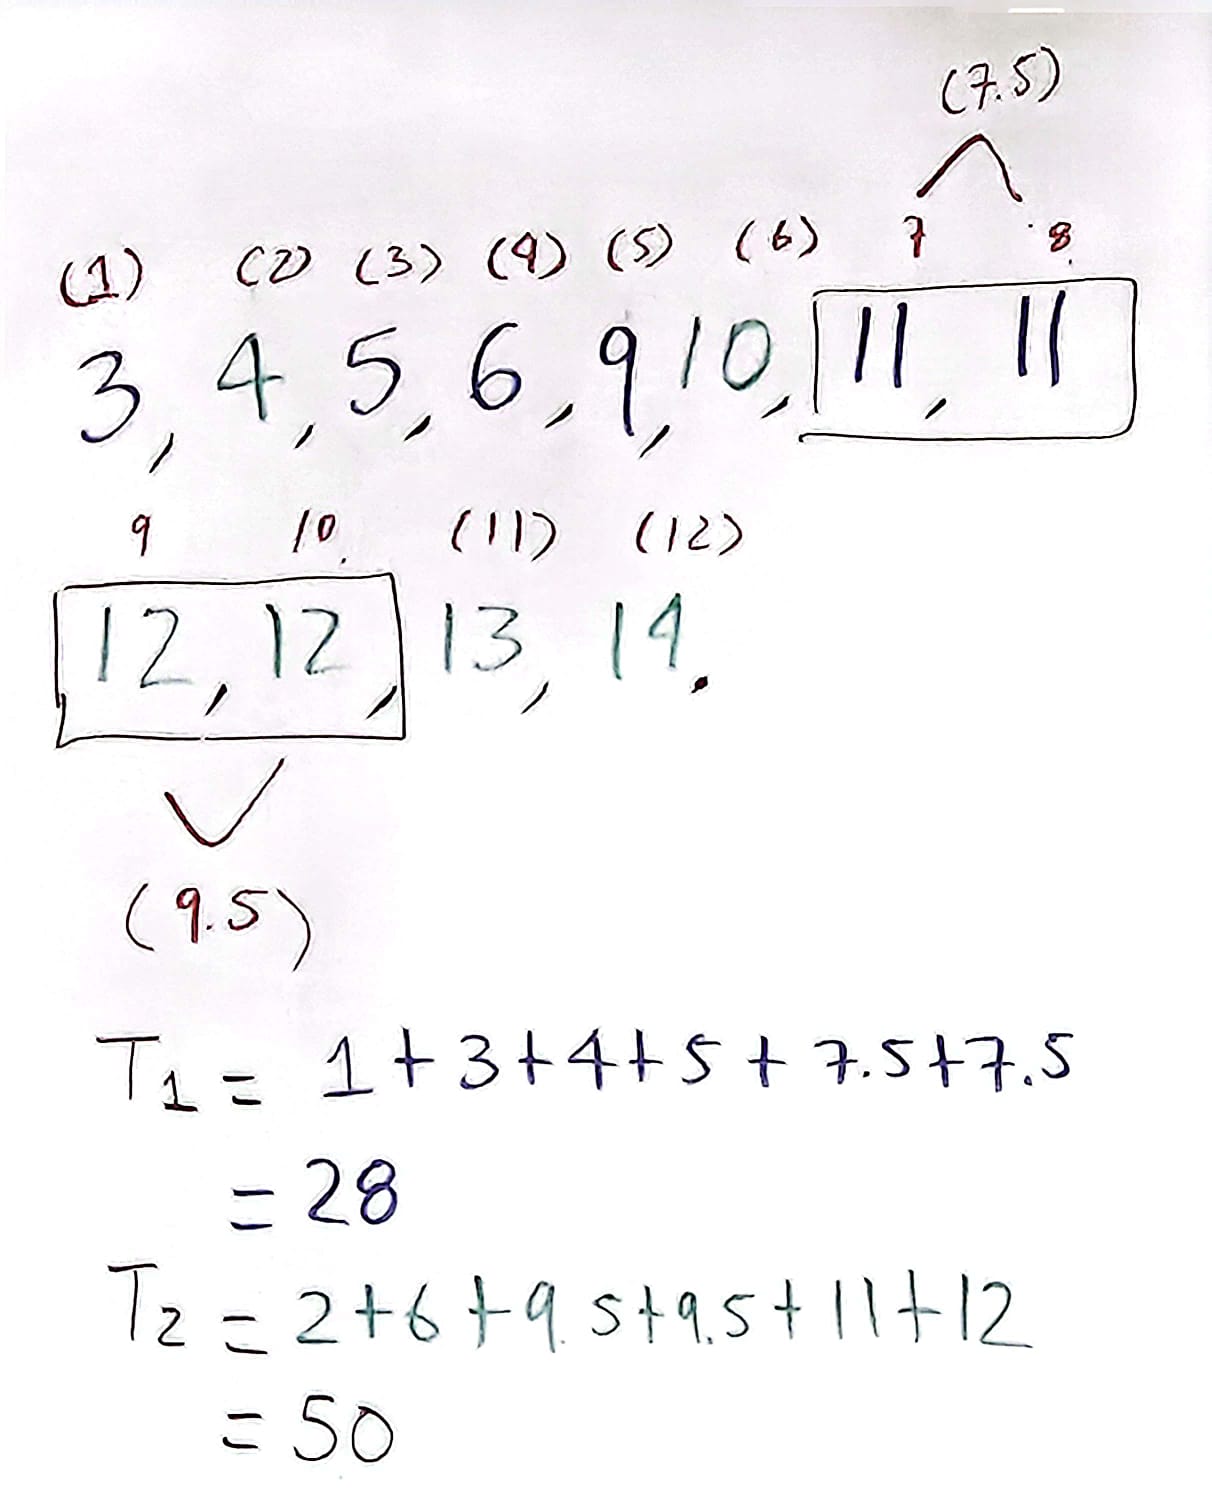 (7.5)
(1) (2) (3) (4) (5) (6) 7 8
3, 4, 5, 6, 9, 10, 11, 11
9 10 (11) (12)
12, 12, 13, 14.
(9.5)
T1 = 1+3+4+5+7.5+7.5
= 28
T2 = 2+6+9.5+9.5+11+12
= 50